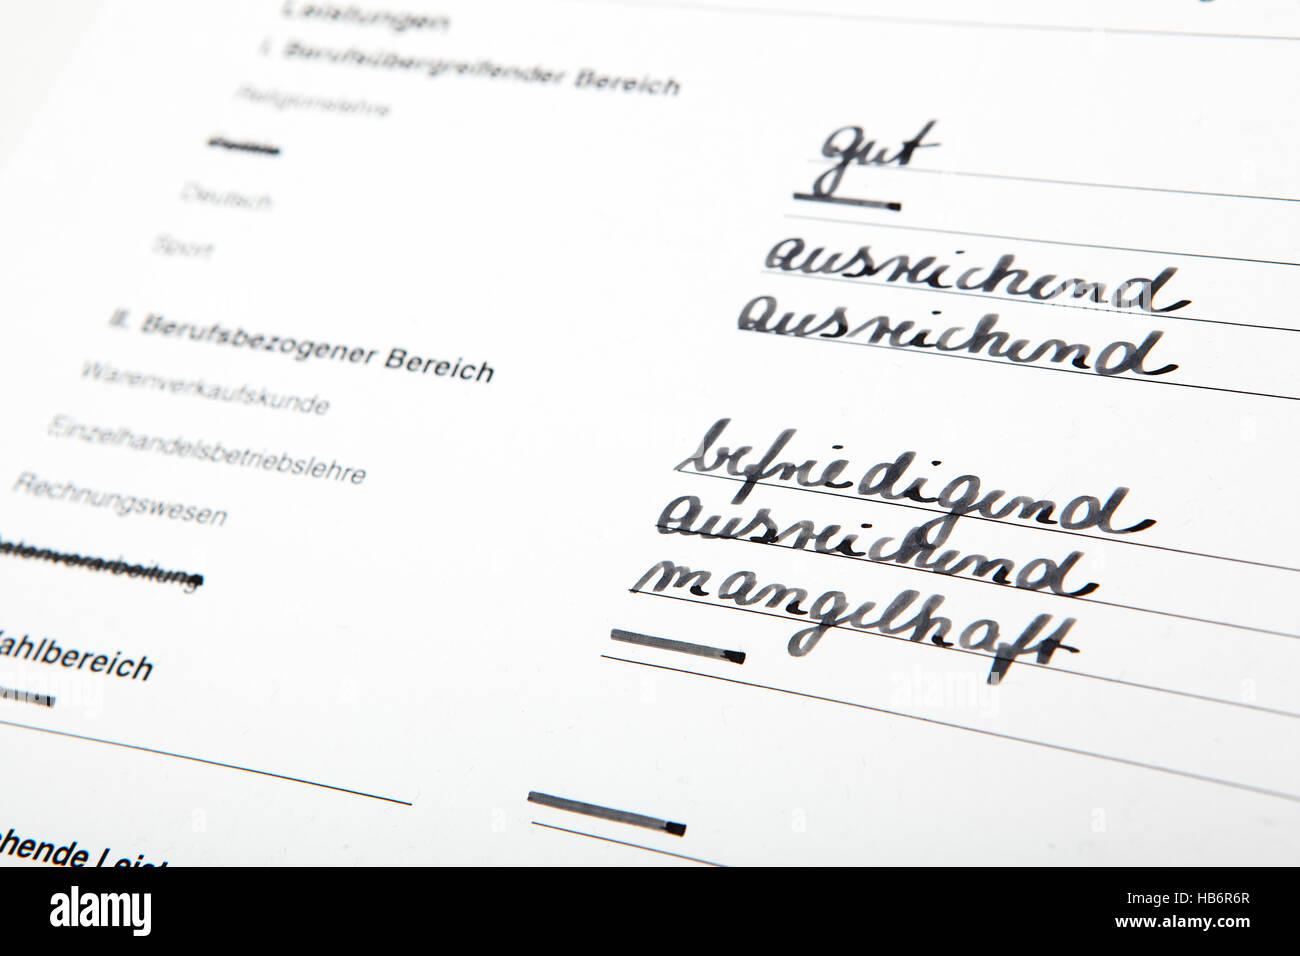 Leistungen
I. Berufsübergreifender Bereich
Religionslehre gut
Deutsch ausreichend
Sport ausreichend
II. Berufsbezogener Bereich
Warenverkaufskunde befriedigend
Einzelhandelsbetriebslehre ausreichend
Rechnungswesen mangelhaft
atenverarbeitung
ahlbereich
ehende Leist
a alamy
alamy
a
alamy
Image ID: HB6R6R
www.alamy.com